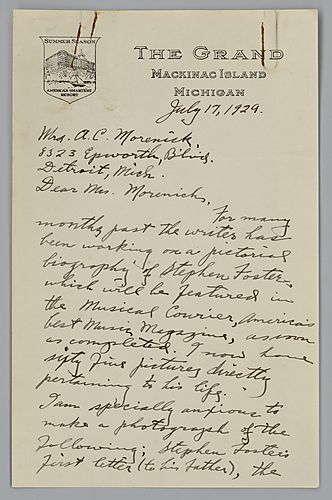 SUMMER SEASON
AMERICA'S SMARTEST
RESORT
THE GRAND
MACKINAC ISLAND
MICHIGAN
July 17, 1929.
Mrs. A. C. Morenick,
8323 Epworth, Blvd.
Detroit, Mich.
Dear Mrs. Morenick,
For many
months past the writer has
been working on a pictorial
biography of Stephen Foster,
which will be featured in
the Musical Courier, America's
best Music Magazine, as soon
as completed. I now have
sixty five pictures directly
pertaining to his life.
I am specially anxious to
make a photograph of the
following; Stephen Foster's
first letter (to his father), the